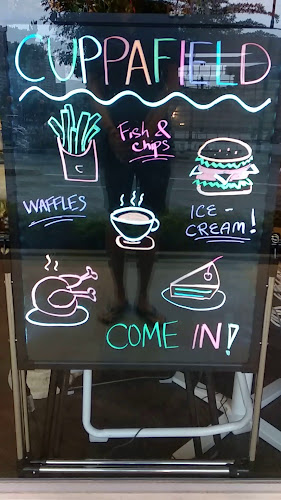 CUPPAFIELD
Fish &
chips
WAFFLES
ICE -
CREAM!
C
COME IN!